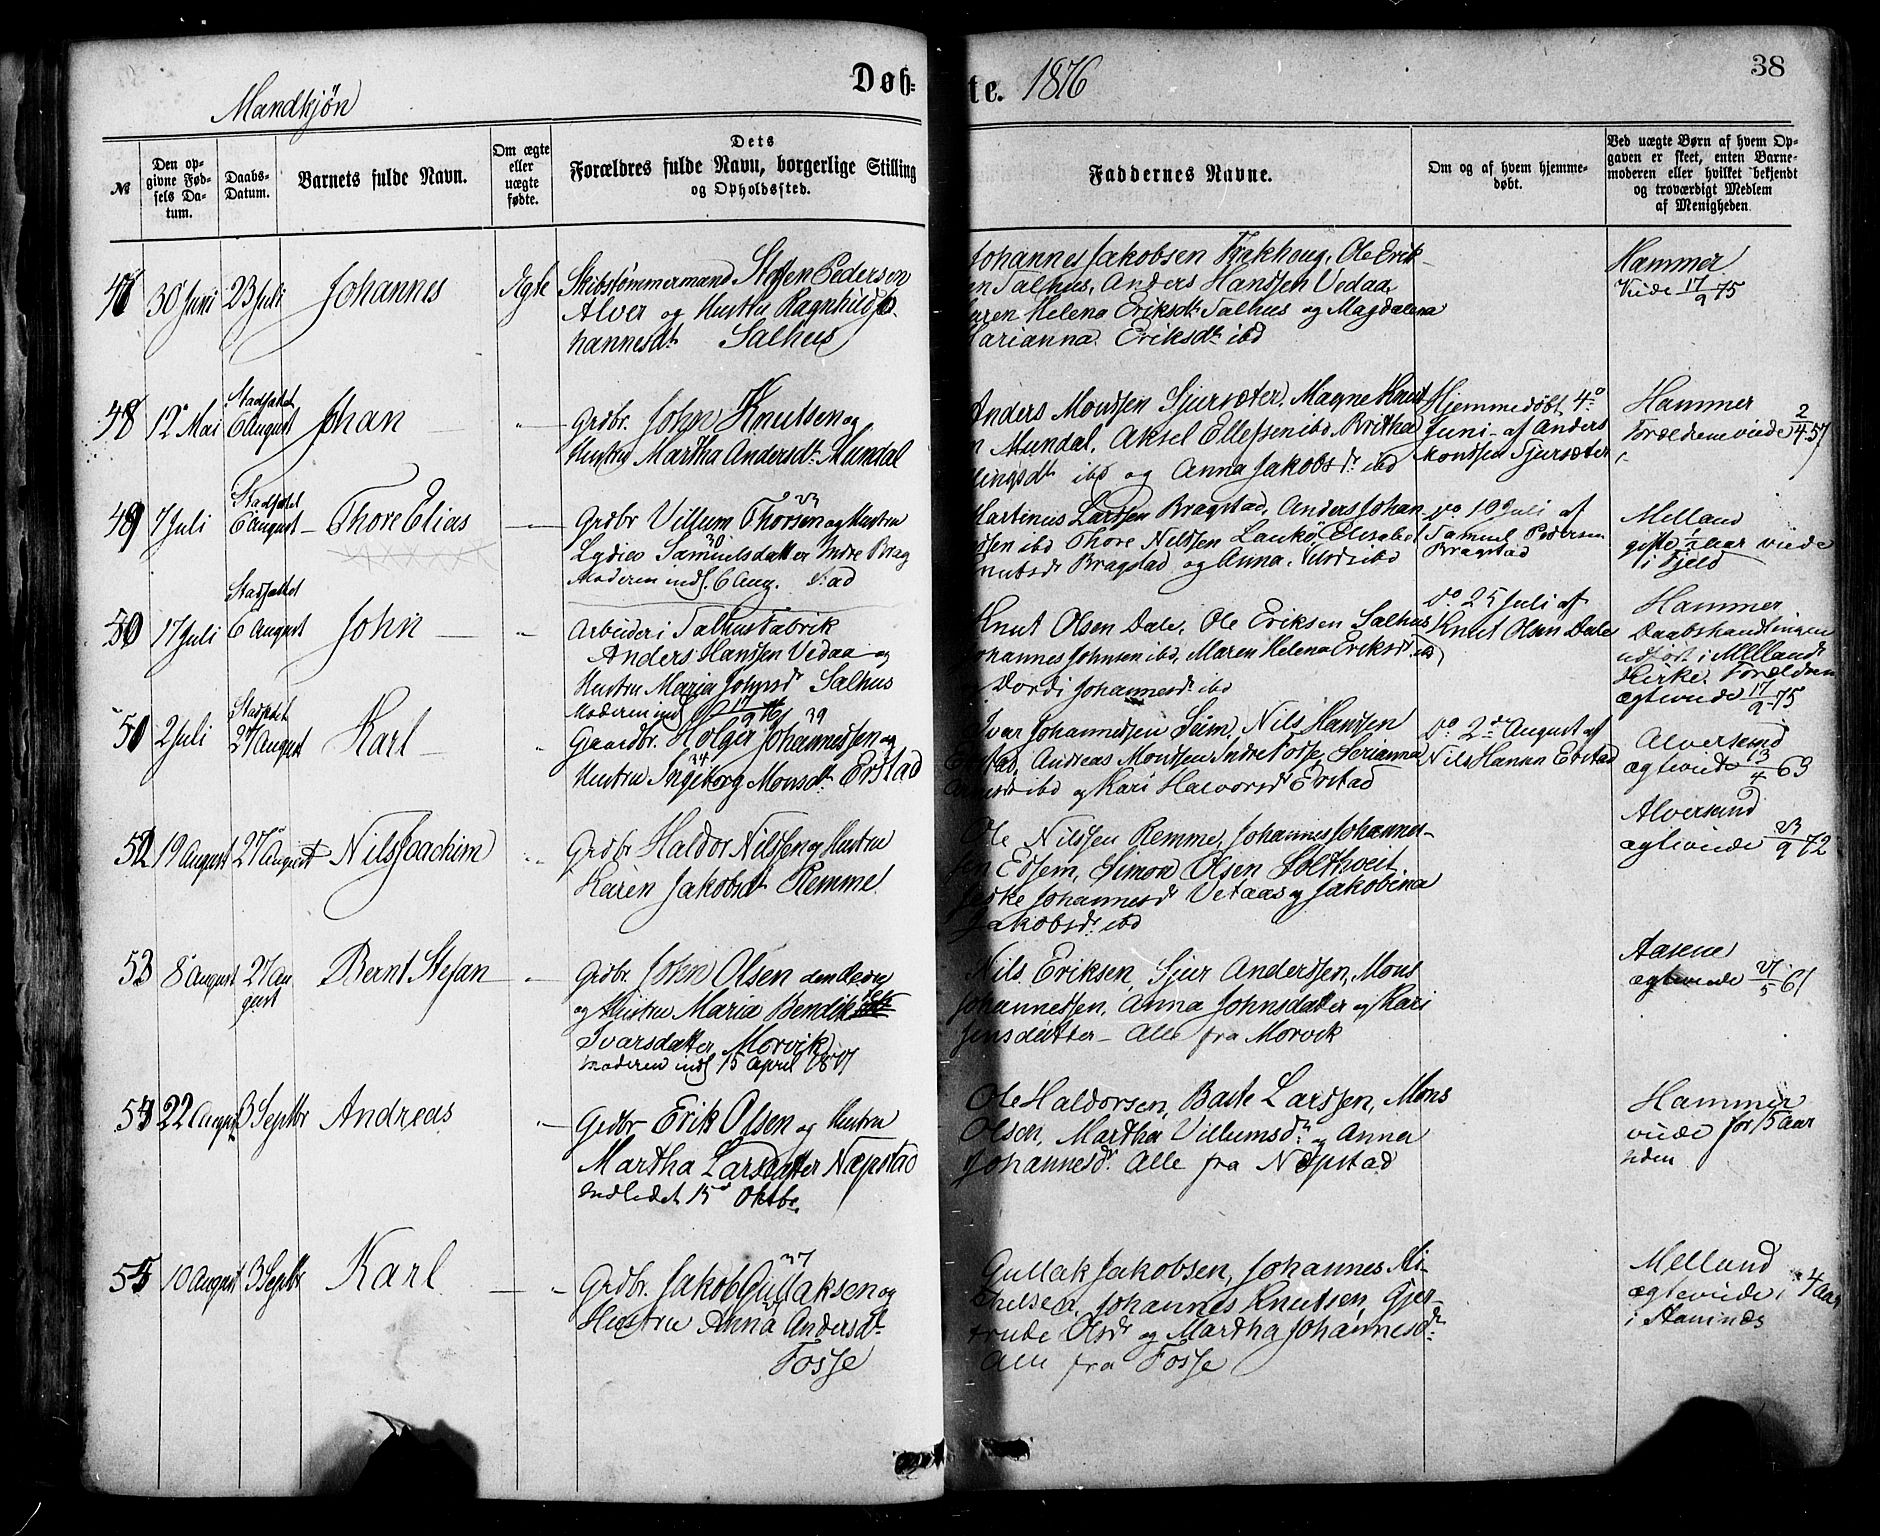 Mandkjøn
Døb=
te. 1876
38
№
Den op-
givne Fød-
sels Da-
tum.
Daabs-
Datum.
Barnets fulde Navn.
Om ægte
eller
uægte
fødte.
Dets
Forældres fulde Navn, borgerlige Stilling
og Opholdssted.
Faddernes Navne.
Om og af hvem hjemme-
døbt.
Ved uægte Børn af hvem Op-
gaven er skeet, enten Barne-
moderen eller hvilket bekjendt
og troværdigt Medlem
af Menigheden
30 Juni 23 Juli Johannes Ægte Skibstømmermand Steffen Pedersen
Alver og Hustru Ragnhild Jo-
hannesdt Salhus
Johannes Jakobsen Ole Erik-
en Salhus, Anders Hanssen Vedaa
aren Helena Eriksdt Salhus og Magdalena
Marianna Eriksdt ibd
Hammer
Viede 17/9 75
48 12 Mai 6 August Johan Grdbr. John Knutsen og
Hustru Martha Andersdt. Mundal
Anders Monssen Sjursæter, Magne Knut
n Mundal, Aksel Ellefsen ibd Britha
lingsdt ibd og Anna Jakobsdr ibd
Hjemmedøbt 4º
Juni af Anders
Monssen Sjursæter
Hammer
Forældrene viede 2/4 57
49 7 Juli 6 August Thore Elias Grdbr Villum Thorsen og Hustru
30
Lydia Samuelsdatter Indre Brag
Moderen indl. 6 Aug. stad
Martinus Larssen Bragstad, Anders Johan
ssen ibd Thore Nilssen Elisabet
Knutsdr Bragstad og Anna ibd
Do 19 Juli af
Samuel Pedersen
Bragstad
Melland
gifte 1/2 aar viede
i Fjeld
50 17 Juli 6 August John Arbeider i Salhus Fabrik
Anders Hanssen Vedaa og
Hustru Maria Johnsdr Salhus
Moderen indl 17/9 76
Knut Olsen Dale, Ole Eriksen Salhus
ohannes Johnsen ibd, Maren Helena Eriksdr ibd
Dordi Johannesdr ibd
Do 25 Juli af
Knut Olsen Dale
Hammer
Daabshandlingen
udført i Mellands
Kirke. Forældrene
ægteviede 17/9 75
51 2 Juli 27 August Karl Gaardbr. Holger Johannessen og
39
34
Hustru Ingeborg Monsdt. Erstad
Ivar Johannessen Seim, Nils Hanssen
Erstad, Andreas Monssen Indre Fosse, Serianna
ibd og Kari Halvorsdr Erstad
Do 2den August af
Nils Hansen Erstad
Alversund
ægteviede 13/4 63
52 19 August 27 August Nils Joachim Grdbr Haldor Nilssen og Hustru
Karen Jakobsdt Remme
Ole Nilssen Remme, Johannes Johannes-
sen Edsem, Simon Olsen Solthveit
Johannesdr Vetaas og Jakobina
Jakobsdr. ibd
Alversund
ægteviede 23/9 72
53 8 August 27 Au
gust Bernt Stefan Grdbr. John Olsen
og Hustru Maria Bendik
Ivarsdatter Morvik
Moderen indl 15 April 1877
Nils Eriksen, Sjur Anderssen, Mons
Johannessen, Anna Johnsdatter og Kari
Jensdatter - Alle fra Morvik
Aasene
ægteviede 21/5 61
54 22 August 3 Septbr Andreas Grdbr Erik Olsen og Hustru
Martha Larsdatter Næpstad
Indledet 15d Oktbr
Ole Haldorsen, Baste Larssen, Mons
Olsen, Martha Villumsdr og Anna
Johannesdr. Alle fra Næpstad
Hammer
viede for 15 aar
siden
55 10 August 3 Septbr Karl Grdbr. Jakob Gullaksen og
37
Hustru Anna Andersdt
Fosse
Gullak Jakobsen, Johannes Mi-
chelsen, Johannes Knutsen, Gjer-
trude Olsdr og Martha Johannesdr.
Alle fra Fosse
Melland
ægteviede i 4 aar
i Hammer